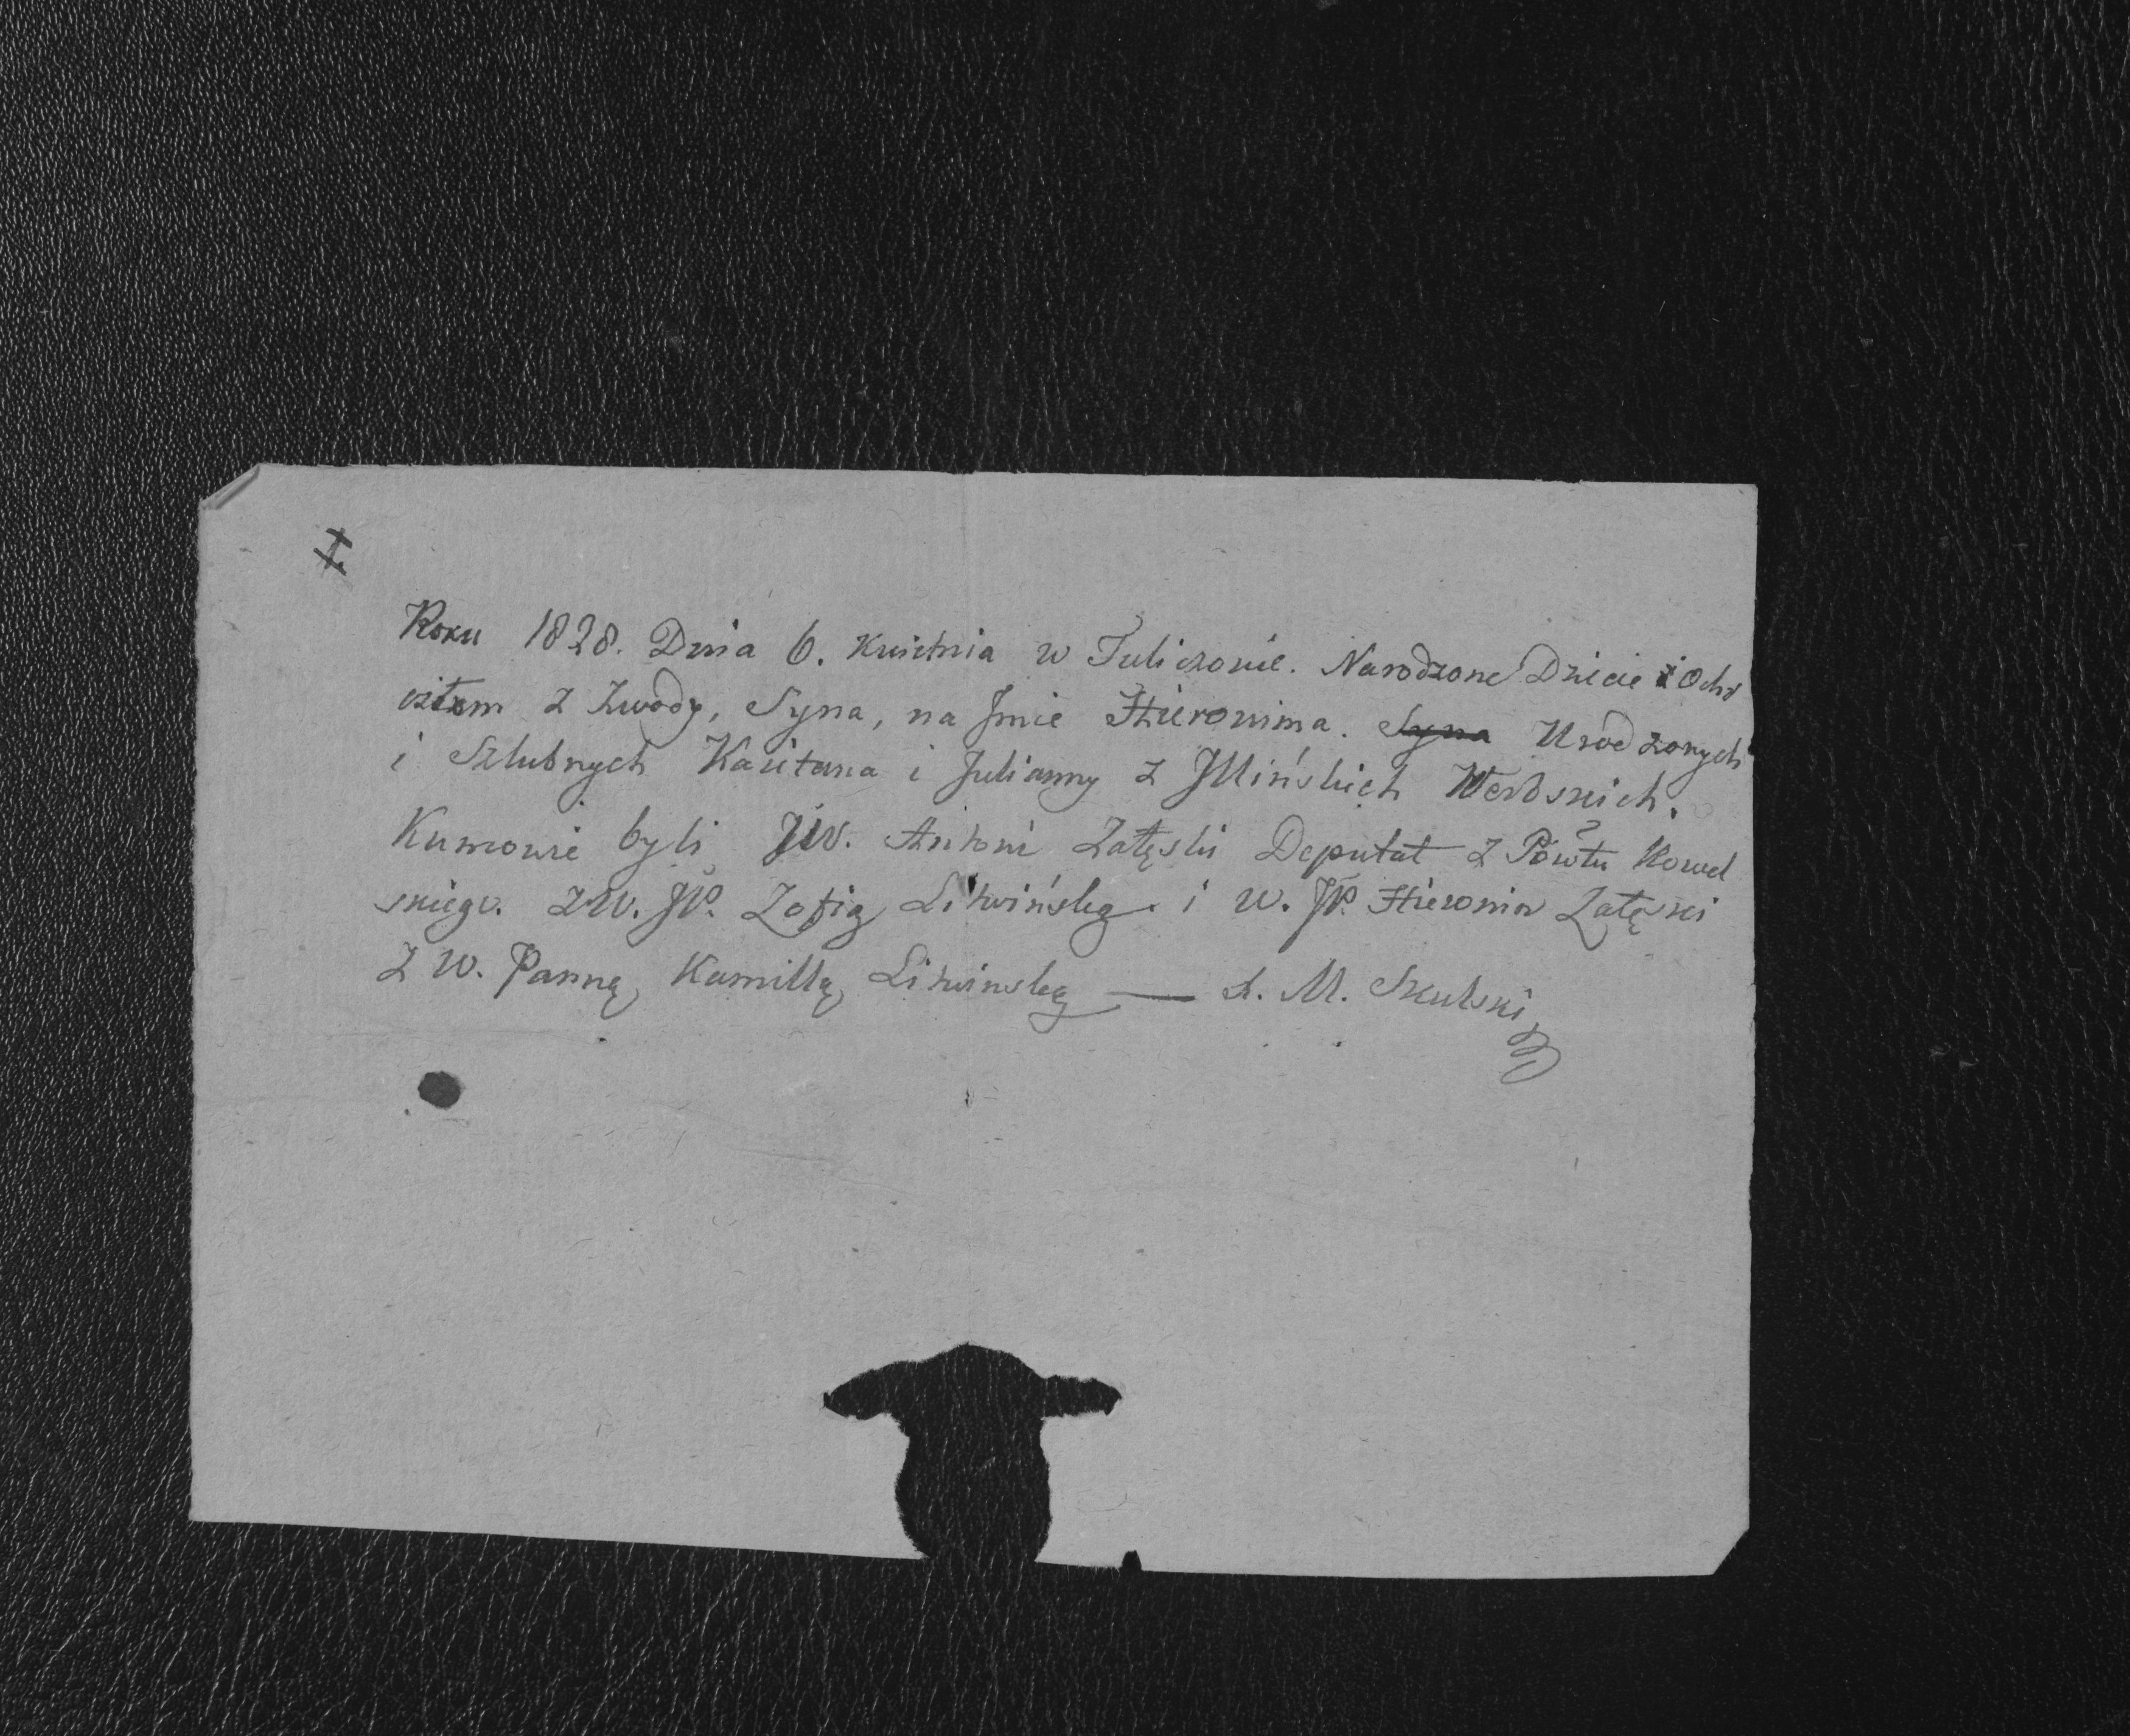 I.
Roku 1828. Dnia 6. Kwietnia w Tuliczowie. Narodzone Dziecie i Ochr
ciłem z Zwody, Syna, na Jmie Hieronima. Syna Urodzonych
i Szlubnych Kaietana i Julianny z Jllińskich Werbskich.
Kumowie byli JW. Antoni Załęski Deputat z Pówtu Kowel
skiego. z W. JP. Zofią Litwińską. i W. JP. Hieronim Załęski
z W. Panną Kamillą Litwinską — X. M. Szulski